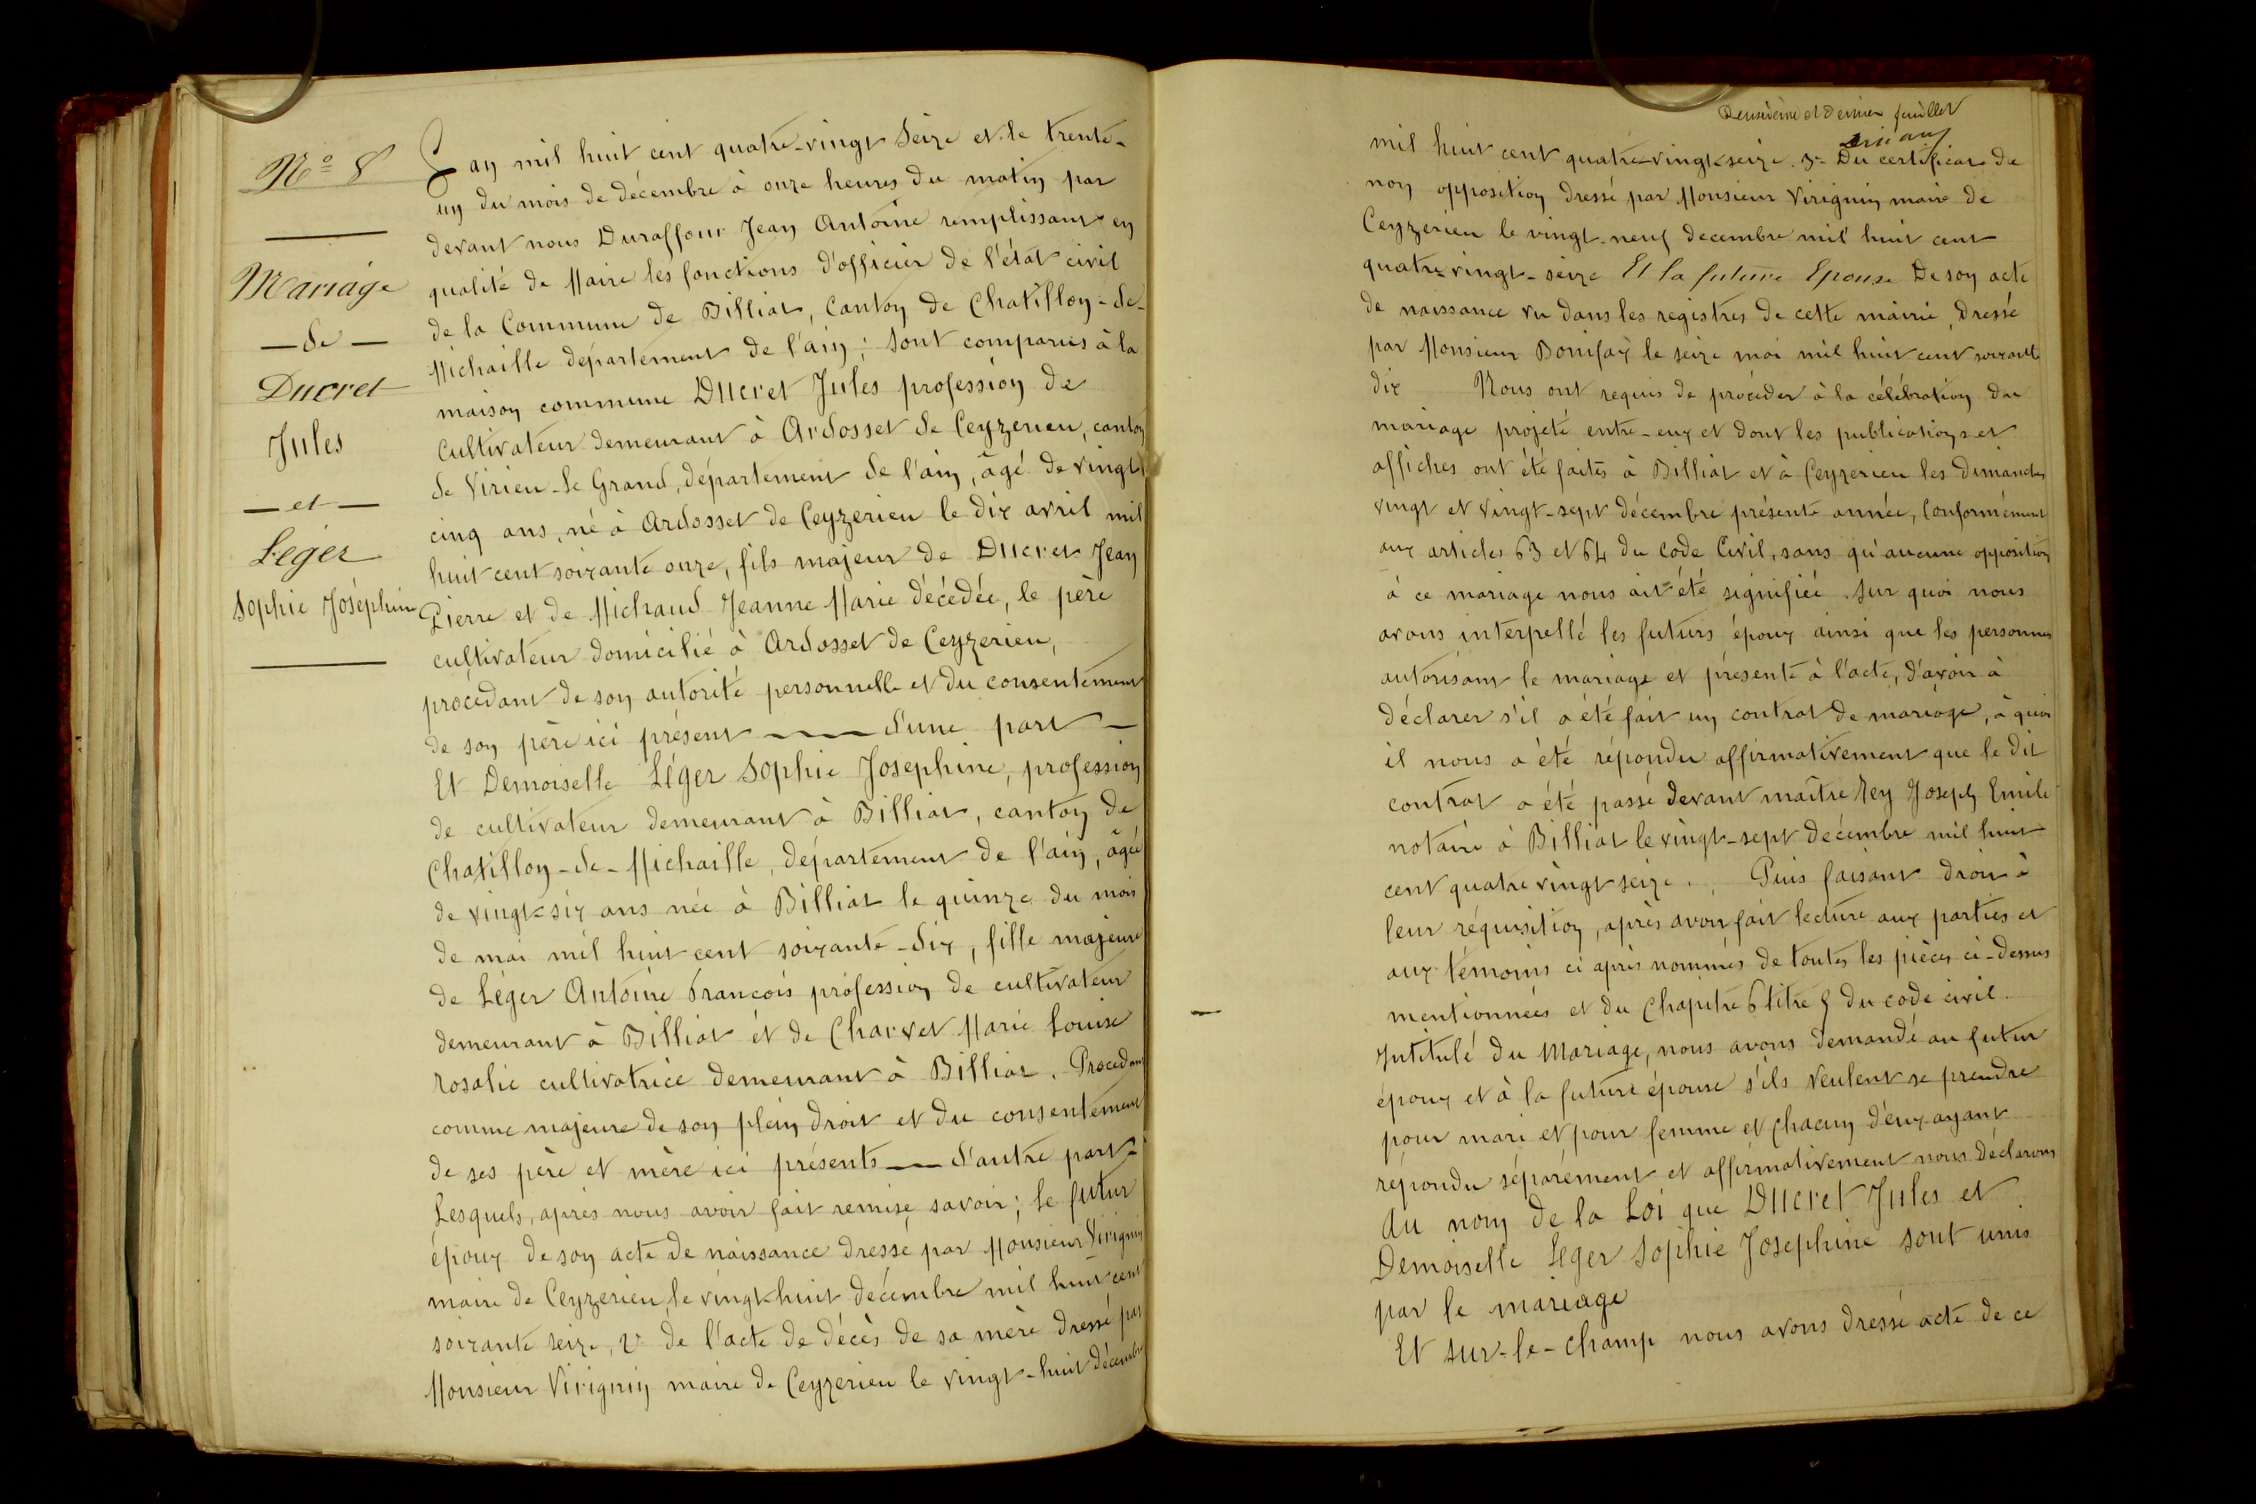 N° 8
Mariage
de
Ducret
Jules
et
Léger
Sophie Joséphine
L'an mil huit cent quatre-vingt seize et le trente-
un du mois de décembre à onze heures du matin par
devant nous Duraffour Jean Antoine remplissant en
qualité de Maire les fonctions d'officier de l'état civil
de la Commune de Billiat, Canton de Chatillon-de-
Michaille département de l'ain ; sont comparus à la
maison commune Ducret Jules profession de
Cultivateur demeurant à Ardosset de Ceyzerieu, canton
de Virieu-le Grand, département de l'ain, âgé de vingt
cinq ans, né à Ardosset de Ceyzerieu le dix avril mil
huit cent soixante onze, fils majeur de Ducret Jean
Pierre et de Michaud Jeanne Marie décédée, le père
cultivateur domicilié à Ardosset de Ceyzerieu,
procédant de son autorité personnelle et du consentement
de son père ici présent — d'une part —
Et Demoiselle Léger Sophie Josephine, profession
de cultivateur demeurant à Billiat, canton de
Chatillon-de-Michaille, département de l'ain, âgée
de vingt-six ans née à Billiat le quinze du mois
de mai mil huit cent soixante-dix, fille majeure
de Léger Antoine François profession de cultivateur
demeurant à Billiat et de Charvet Marie Louise
rosalie cultivatrice demeurant à Billiat. Procedant
comme majeure de son plein droit et du consentement
de ses père et mère ici présents — d'autre part —
Lesquels, après nous avoir fait remise savoir ; le futur
époux de son acte de naissance dressé par Monsieur Virignin
maire de Ceyzerieu le vingt-huit décembre mil huit cent
soixante seize, 2° de l'acte de décès de sa mère dressé par
Monsieur Virignin maire de Ceyzerieu le vingt-huit décembre
Deuxième et dernier feuillet
mil huit cent quatre-vingt-seize. 3° Du certificat de
non opposition dressé par Monsieur Virignin maire de
Ceyzerieu le vingt-neuf decembre mil huit cent
quatre-vingt-seize Et la future Epouse De son acte
de naissance vu dans les registres de cette mairie, dressé
par Monsieur Bonifay le seize mai mil huit cent soixante
dix Nous ont requis de procéder à la célébration du
mariage projeté entre-eux et dont les publications et
affiches ont été faites à Billiat et à Ceyzerieu les dimanches
vingt et vingt-sept décembre présente année, Conformément
aux articles 63 et 64 du Code Civil, sans qu'aucune opposition
à ce mariage nous ait été signifiée. Sur quoi nous
avons interpellé les futurs époux ainsi que les personnes
autorisant le mariage et présente à l'acte, d'avoir à
déclarer s'il a été fait un contrat de mariage, à quoi
il nous a été répondu affirmativement que le dit
contrat a été passé devant maître Rey Joseph Emile
notaire à Billiat le vingt-sept décembre mil huit
cent quatre vingt seize. Puis faisant droit à
leur réquisition, après avoir fait lecture aux parties et
aux témoins ci après nommés de toutes les pièces ci-dessus
mentionnées et du Chapitre 6 titre 5 du code civil.
Intitulé du Mariage, nous avons demandé au futur
époux et à la future épouse s'ils veulent se prendre
pour mari et pour femme et chacun d'eux ayant
répondu séparément et affirmativement nous déclarons
au nom de la Loi que Ducret Jules et
Demoiselle Leger Sophie Josephine sont unis
par le mariage
Et sur-le-champ nous avons dressé acte de ce